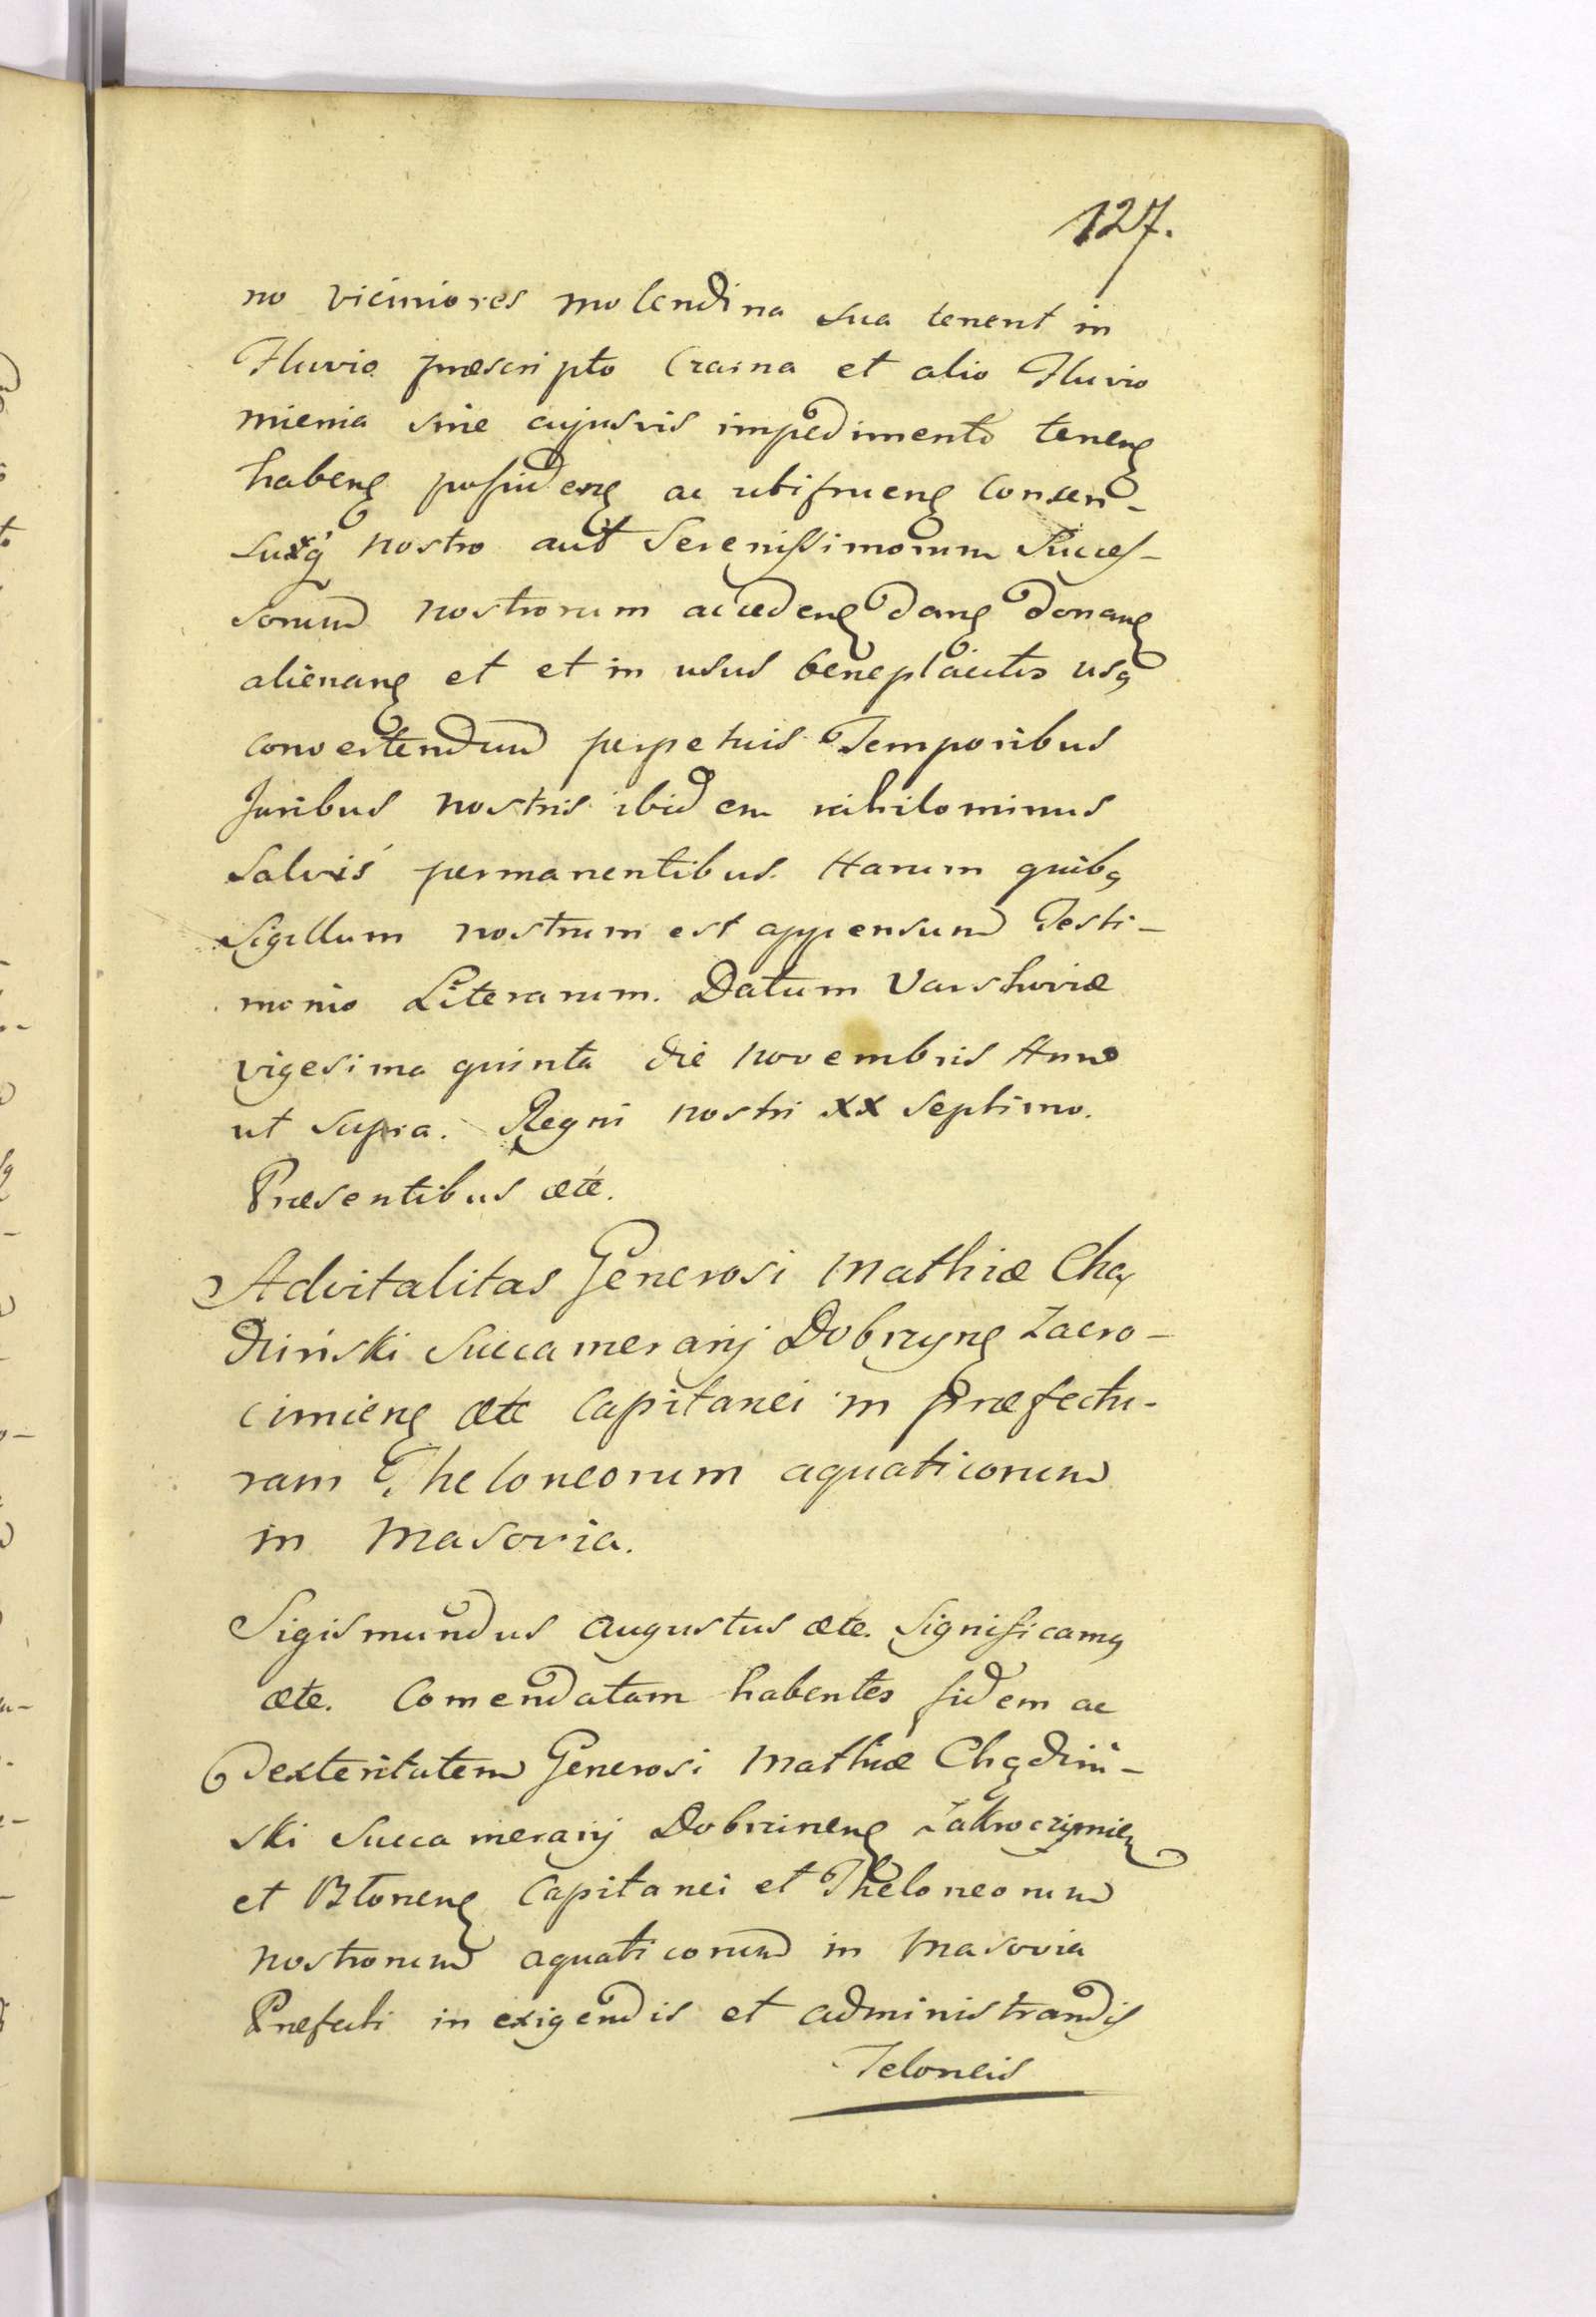 127.
no viciniores molendina sua tenent in
Fluvio præscripto Czarna et alio Fluvio
mienia sine cujusvis impedimento tenen
haben possiden ac utifruen Consen-
suq nostro aut Serenissimorum Succes-
sorum nostrorum acceden dan donan
alienan et et in usus beneplacitos usq
convertendum perpetuis Temporibus
Juribus nostris ibidem nihilominus
Salvis permanentibus. Harum quibq
Sigillum nostrum est appensum Testi-
monio Literarum. Datum Varschoviæ
vigesima quinta die novembris Anno
ut supra. Regni nostri XX Septimo.
Præsentibus ætc.
Advitalitas Generosi Mathiæ Chą
dziński Succamerarij Dobrzyn Zacro-
cimien ætc Capitanei in præfectu-
ram Theloneorum aquaticorum
in Masovia.
Sigismundus Augustus ætc. Significamq
ætc. Comendatam habentes fidem ac
dexteritatem Generosi Mathiæ Chądziń-
ski Succamerarij Dobrzinen Zakroczymien
et Błonen Capitanei et Theloneorum
nostrorum aquaticorum in Masovia
Præfecti in exigendis et administrandis
Teloneis